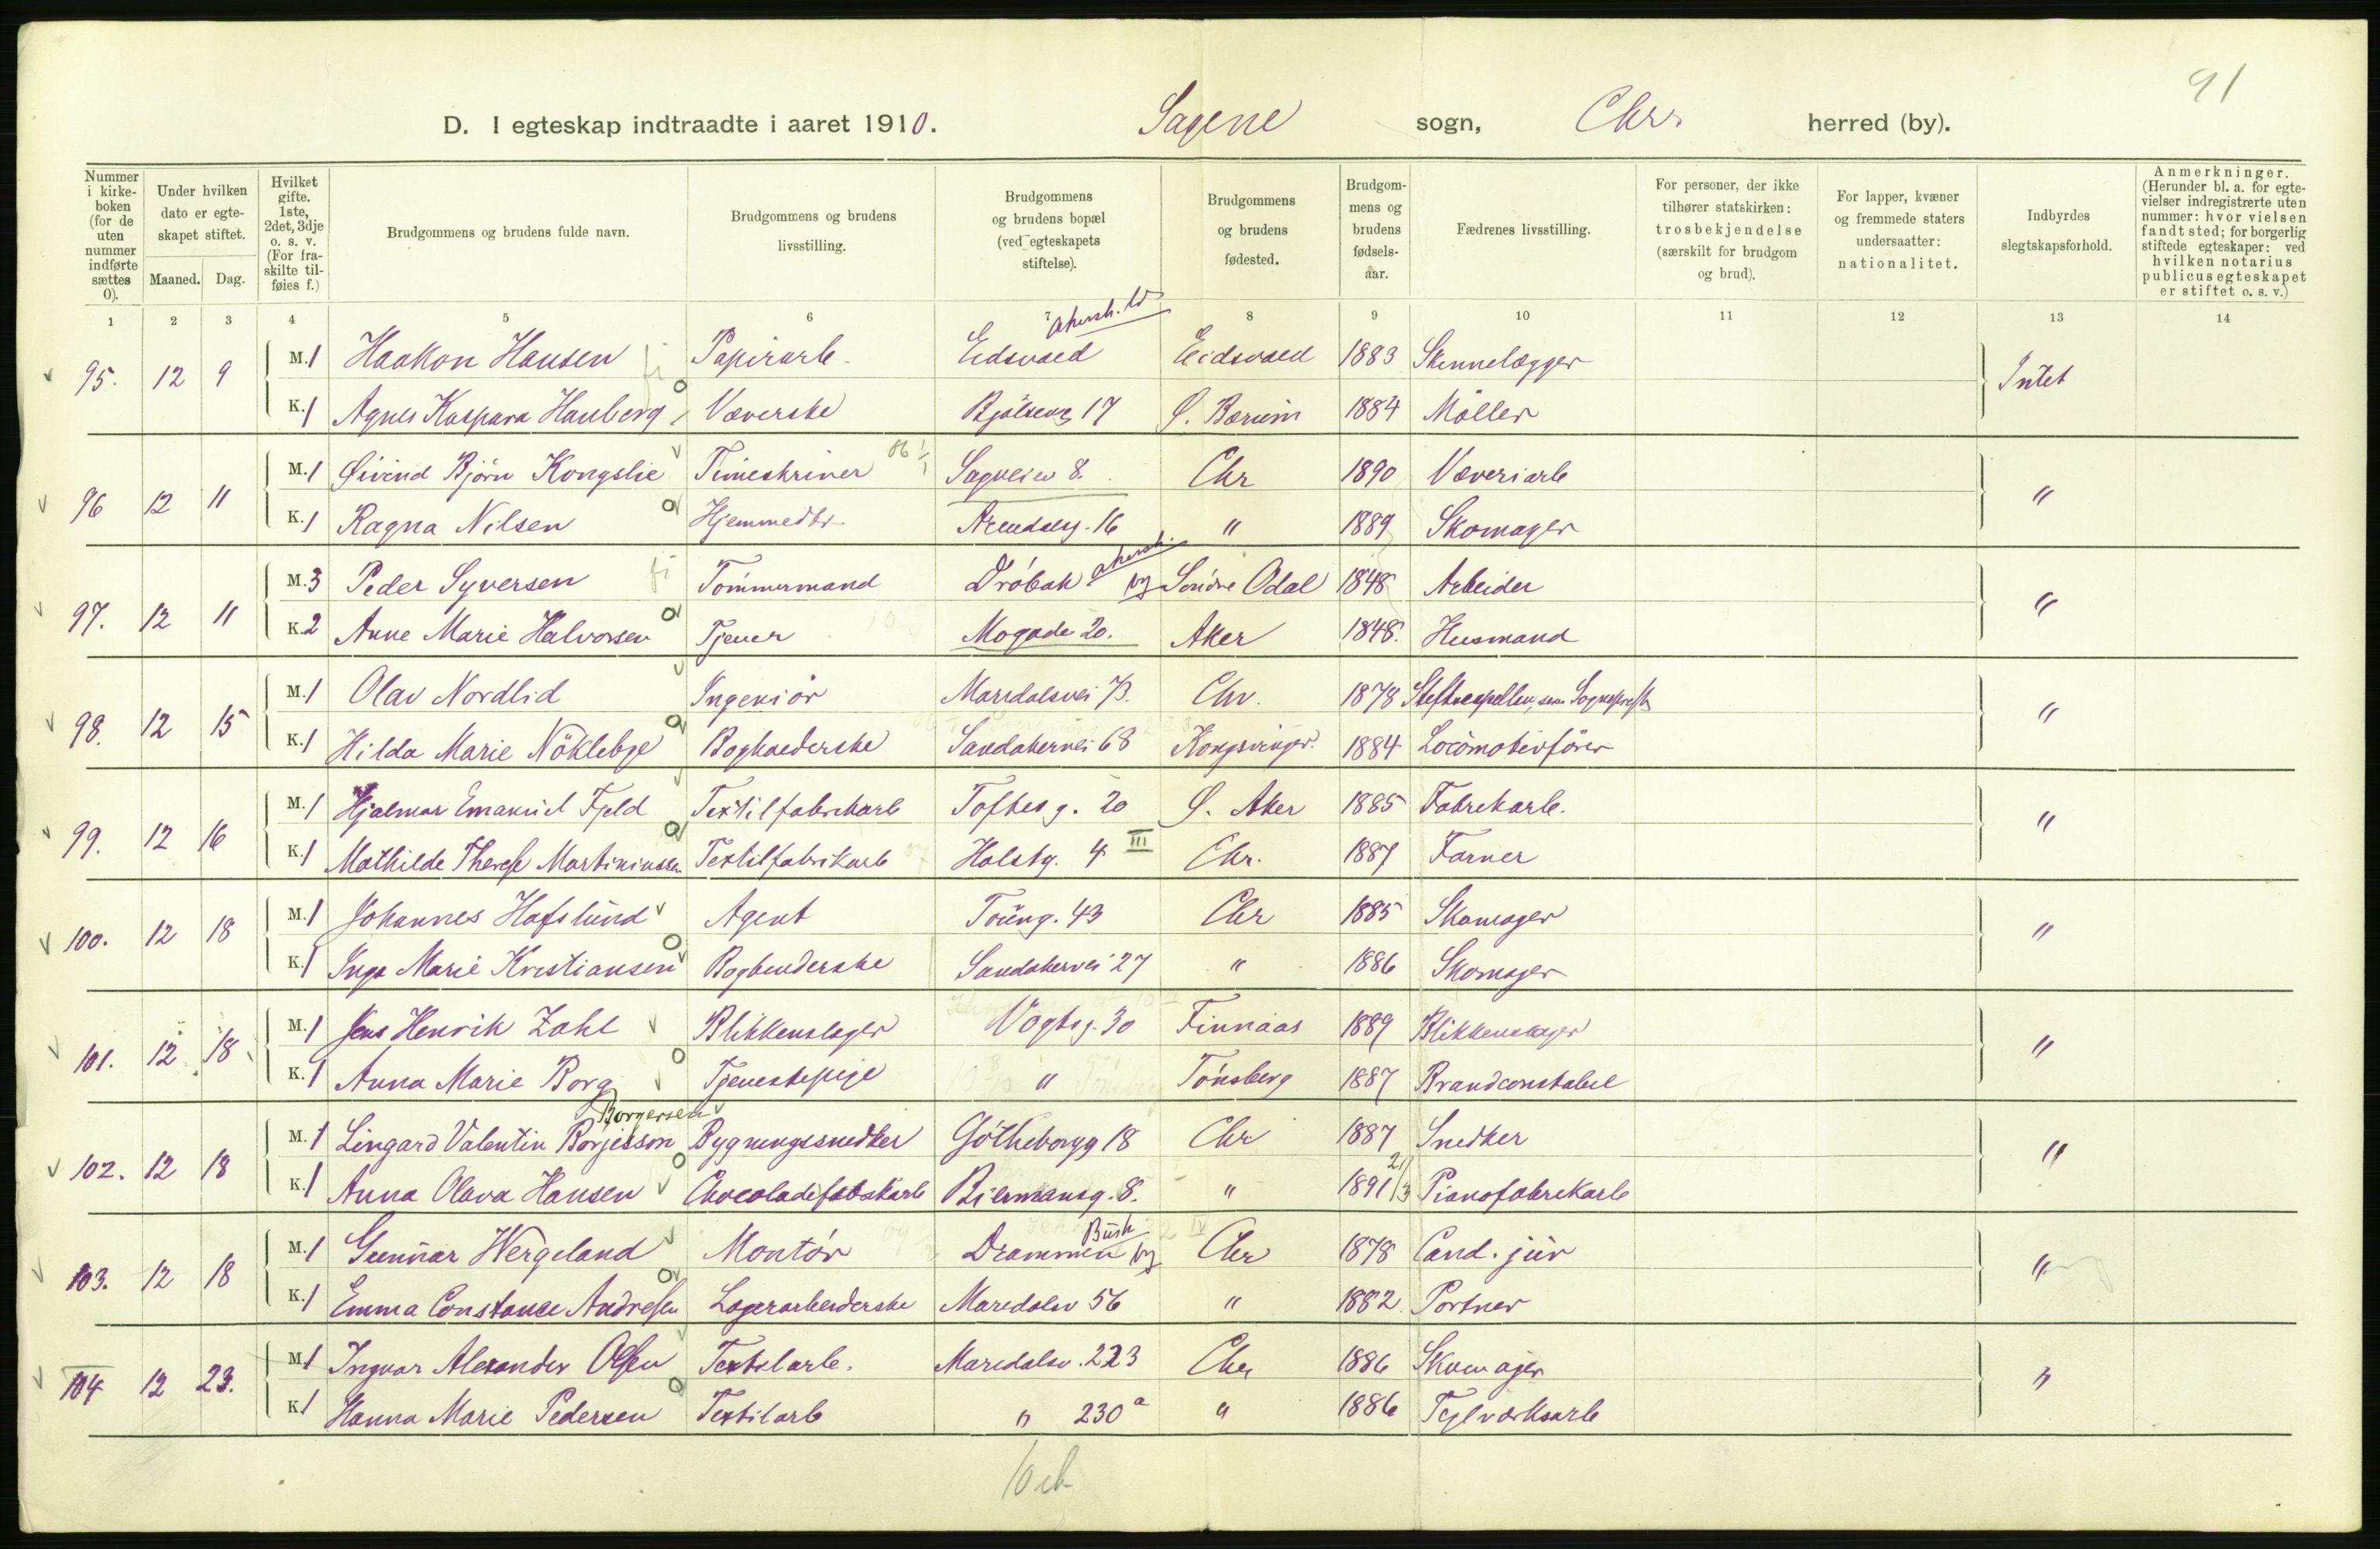 91
D. I egteskap indtraadte i aaret 1910. Sagene sogn, Chr. herred (by).
Nummer i kirkeboken (for de uten nummer indførte sættes 0). | Under hvilken dato er egteskapet stiftet. Maaned. Dag. | Hvilket gifte. 1ste, 2det, 3dje o. s. v. (For fraskilte tilføies f.) | Brudgommens og brudens fulde navn. | Brudgommens og brudens livsstilling. | Brudgommens og brudens bopæl (ved egteskapets stiftelse). | Brudgommens og brudens fødested. | Brudgommens og brudens fødselsaar. | Fædrenes livsstilling. | For personer, der ikke tilhører statskirken: trosbekjendelse (særskilt for brudgom og brud). | For lapper, kvæner og fremmede staters undersaatter: nationalitet. | Indbyrdes slegtskapsforhold. | Anmerkninger. (Herunder bl. a. for egtevielser indregistrerte uten nummer: hvor vielsen fandt sted; for borgerlig stiftede egteskaper: ved hvilken notarius publicus egteskapet er stiftet o. s. v.)
1 2 3 4 5 6 7 8 9 10 11 12 13 14
95. 12 9 M. 1 Haakon Hansen Papirarb. Eidsvold Akersh. Eidsvold 1883 Skinnelægger Intet
K. 1 Agnes Kaspara Hauberg Væverske Bjølseng 17 Ø. Bærum 1884 Møller
96 12 11 M. 1 Øivind Bjørn Kongslie Timeskriver Sagveien 8. Chr 1890 Væveriarb "
K. 1 Ragna Nilsen Hjemmedtr. Arendalsg. 16 " 1889 Skomager
97. 12 11 M. 3 Peder Syversen Tømmermand Drøbak Akersh. Søndre Odal 1848 Arbeider "
K. 2 Anne Marie Halvorsen Tjener Mogade 20. Aker 1848. Husmand
98. 12 15 M. 1 Olav Nordlid Ingeniør Maridalsvei 73. Chr. 1878 Stiftscapellan, sen. Sogneprest "
K. 1 Hilda Marie Nöklebye Boghoederske Sandakervei 68 Kongsvinger. 1884 Locomotivfører
99. 12 16 M. 1 Hjalmar Emanuel Fjeld Textilfabrikarb Toftesg. 20 Ø. Aker 1885 Fabrikarb. "
K. 1 Mathilde Therese Martiniussen Textilfabrikarb Holstg. 4 III Chr. 1887 Farver
100. 12 18 M. 1 Johannes Hafslund Agent Toung. 43 Chr 1885 Skomager "
K. 1 Inga Marie Kristiansen Bogbenderske Sandakervei 27 " 1886 Skomager
101. 12 18 M. 1 Jens Henrik Zahl Blikkenslager Vogtsg. 30 Finnaas 1889 Blikkenslager "
K. 1 Anna Marie Borg Tjenestepige " Tønsberg 1887 Brandconstabel
Borgersen
102. 12 18 M. 1 Lingard Valentin Borjesson Bygningssnedker Götheborgg 18 Chr 1887 Snedker "
K. 1 Anna Olava Hansen Chocoladefabrikarb Biermansg. 8. " 1891 21/3 Pianofabrikarb
103. 12 18 M. 1 Gunnar Wergeland Montør Drammen Busk Chr 1878 Cand. jur "
K. 1 Emma Constance Andresen Lagerarbeiderske Maridalsv 56 " 1882 Portner
104 12 23. M. 1 Ingvar Alexander Olsen Textilarb. Maridalsv. 223 Chr 1886 Skomager "
K. 1 Hanna Marie Pedersen Textilarb " 230a " 1886 Teglverksarb